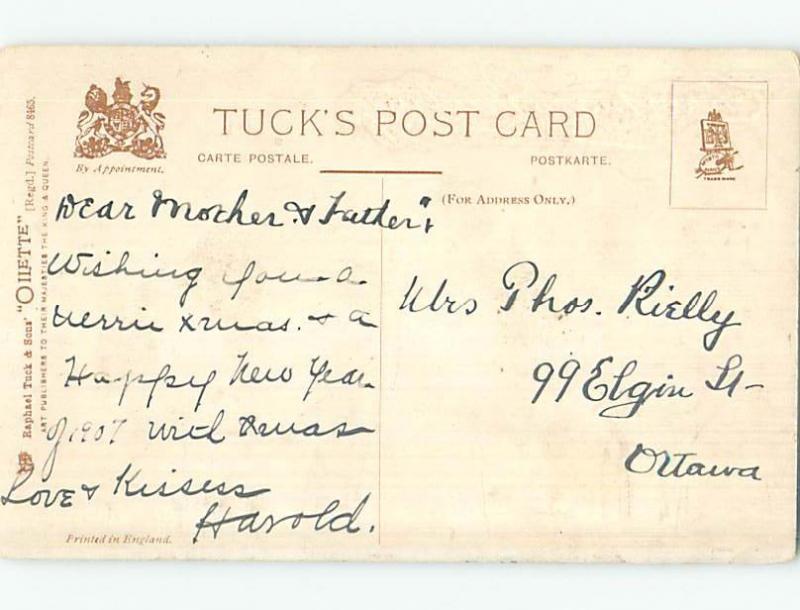 TUCK'S POST CARD
CARTE POSTALE.
POSTKARTE.
By Appointment.
(FOR ADDRESS ONLY.)
TRADE MARK
Raphael Tuck & Sons' "OILETTE" [Regd.] Postcard 8463.
ART PUBLISHERS TO THEIR MAJESTIES THE KING & QUEEN.
Dear Mother & Father,
Wishing you a
Merrie Xmas. & a
Happy New Year
of 1907 with Xmas
Love & Kissess
Harold.
Printed in England.
Mrs Phos. Rielly
99 Elgin St
Ottawa